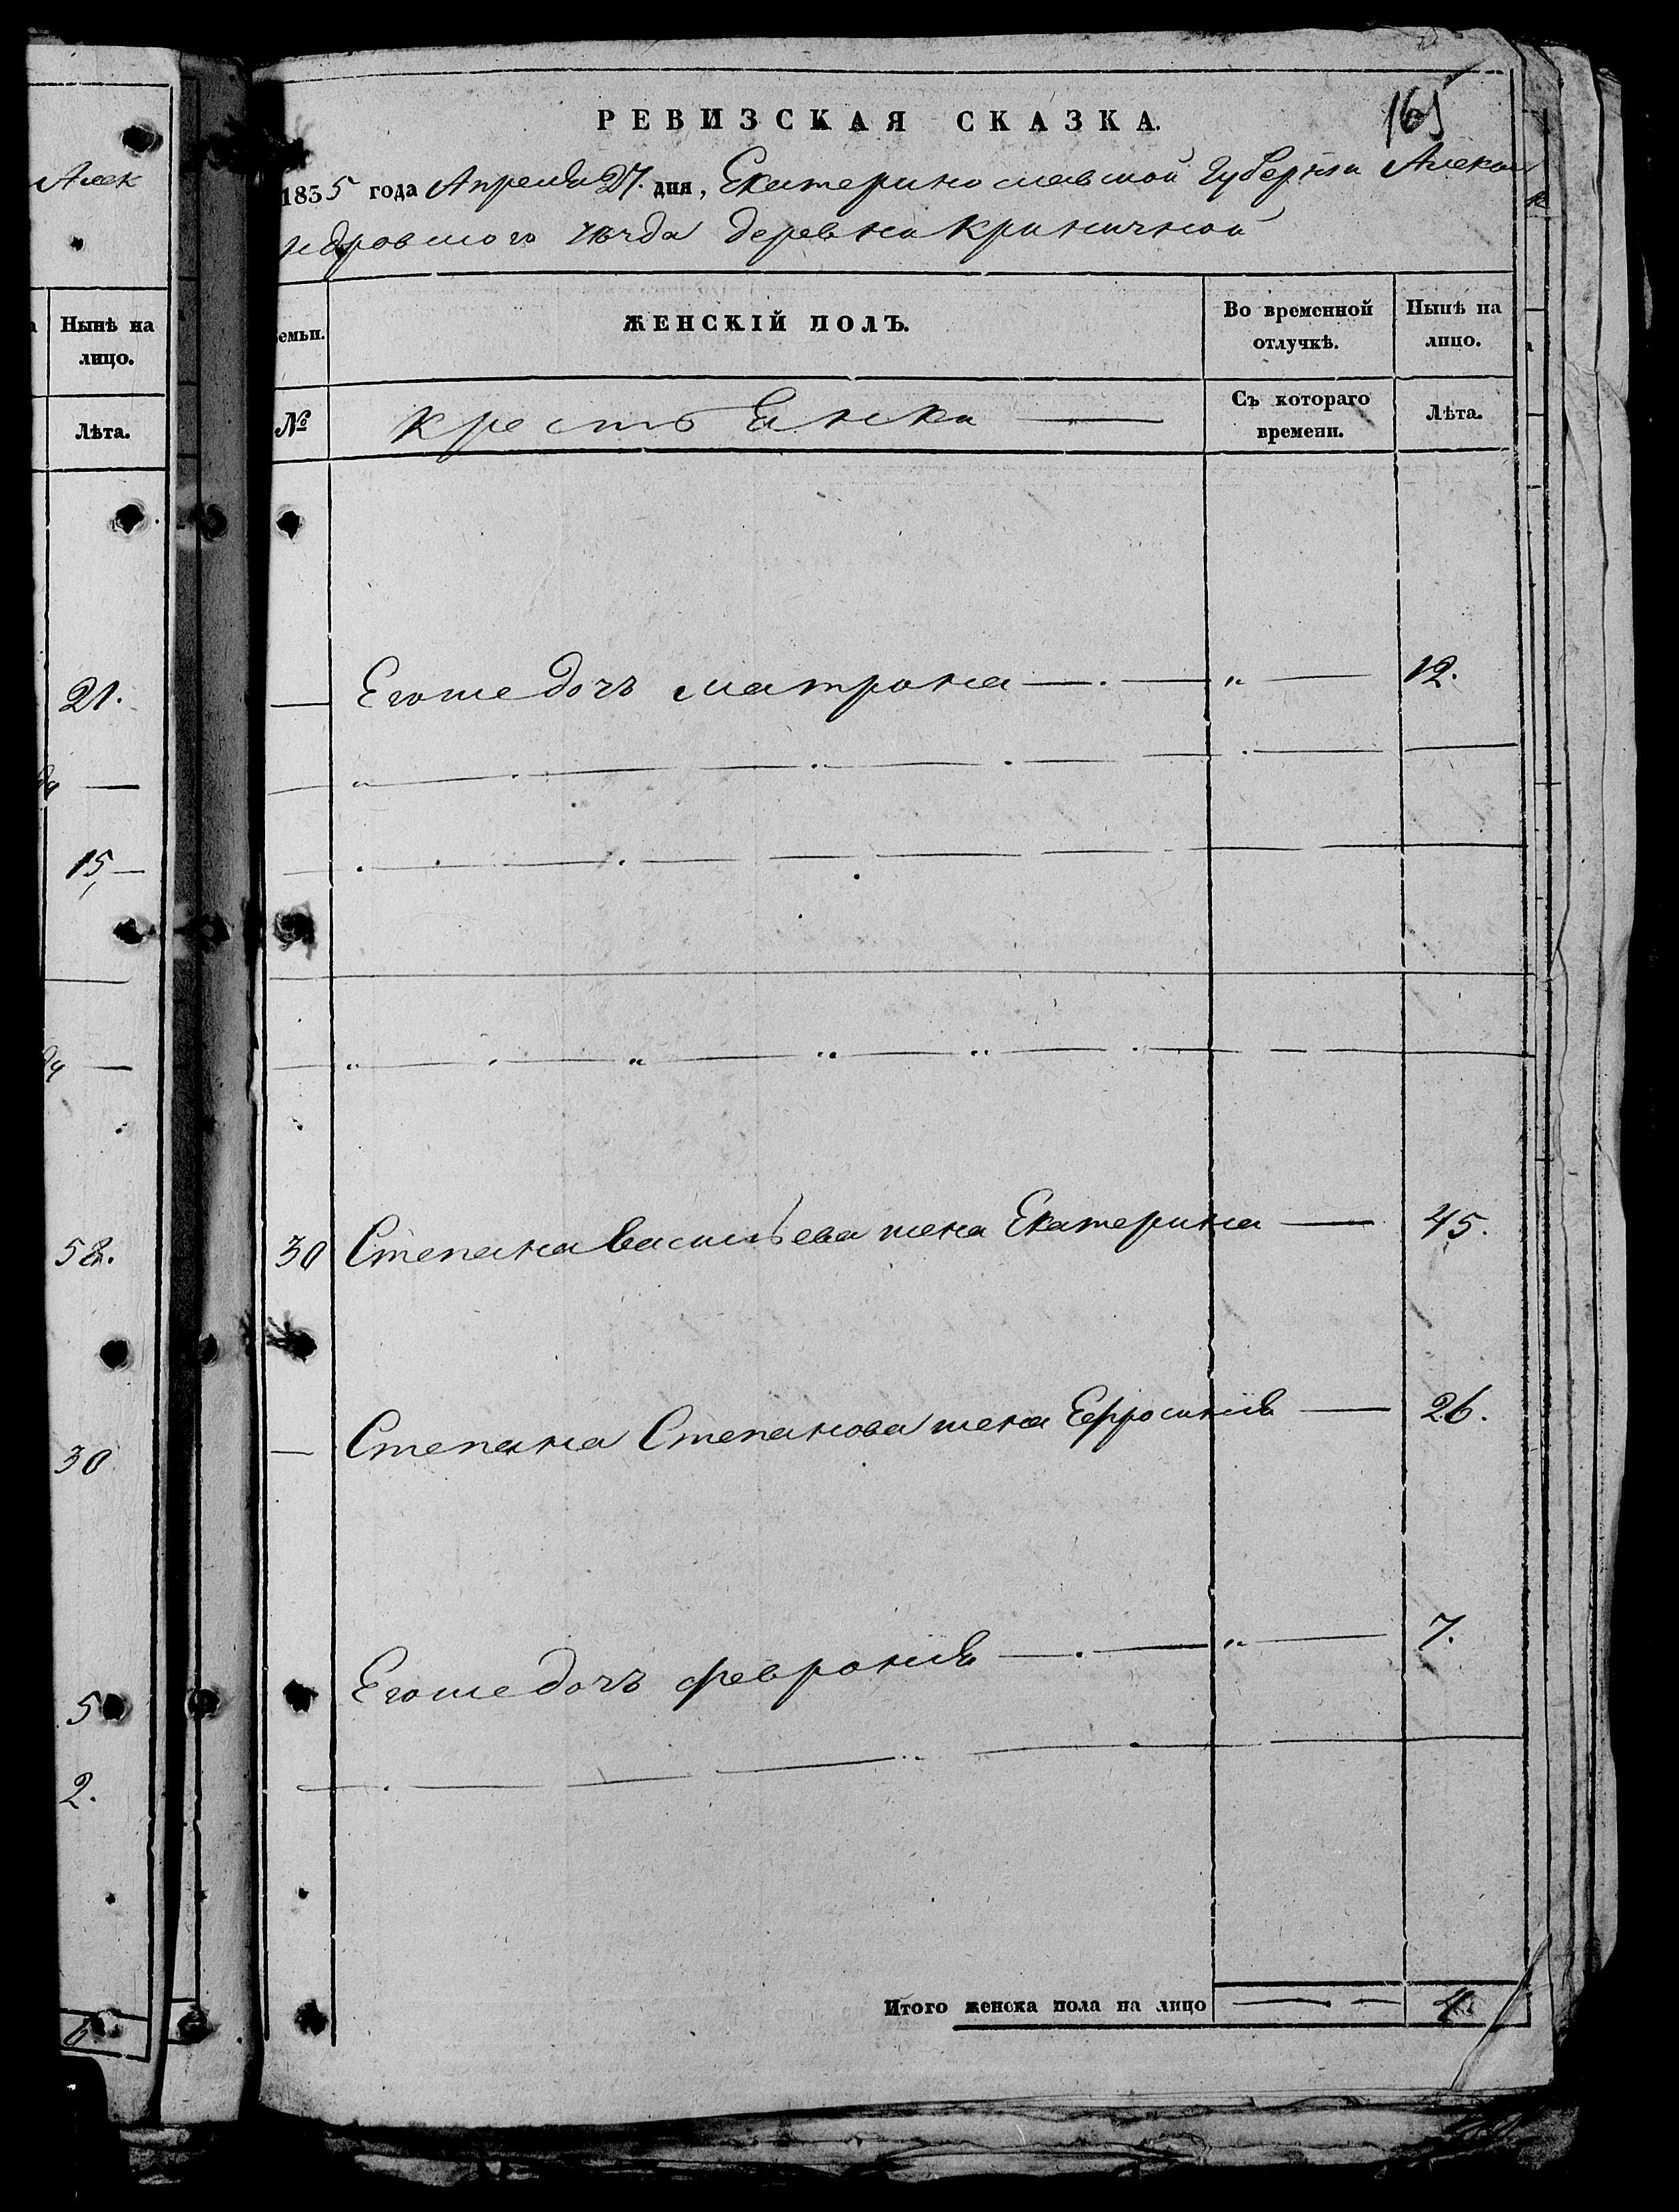 Алек
Нынѣ на
лицо.
Лѣта.
21.
15,
58.
30
5
2.
6.
165
РЕВИЗСКАЯ СКАЗКА.
1835 года Апреля 27. дня, Екатеринославской Губерніи Алекса
ндровского уѣзда деревни Криничной
семьи.
ЖЕНСКІЙ ПОЛЪ.
Во временной
отлучкѣ.
Нынѣ на
лицо.
№
Съ котораго
времени.
Лѣта.
Егоже дочъ Матрона 12.
30 Степана Васильева жена Екатерина 45.
Степана Степанова жена Ефросинія 26.
Егоже дочъ Февронія 7.
Итого женска пола на лицо 4